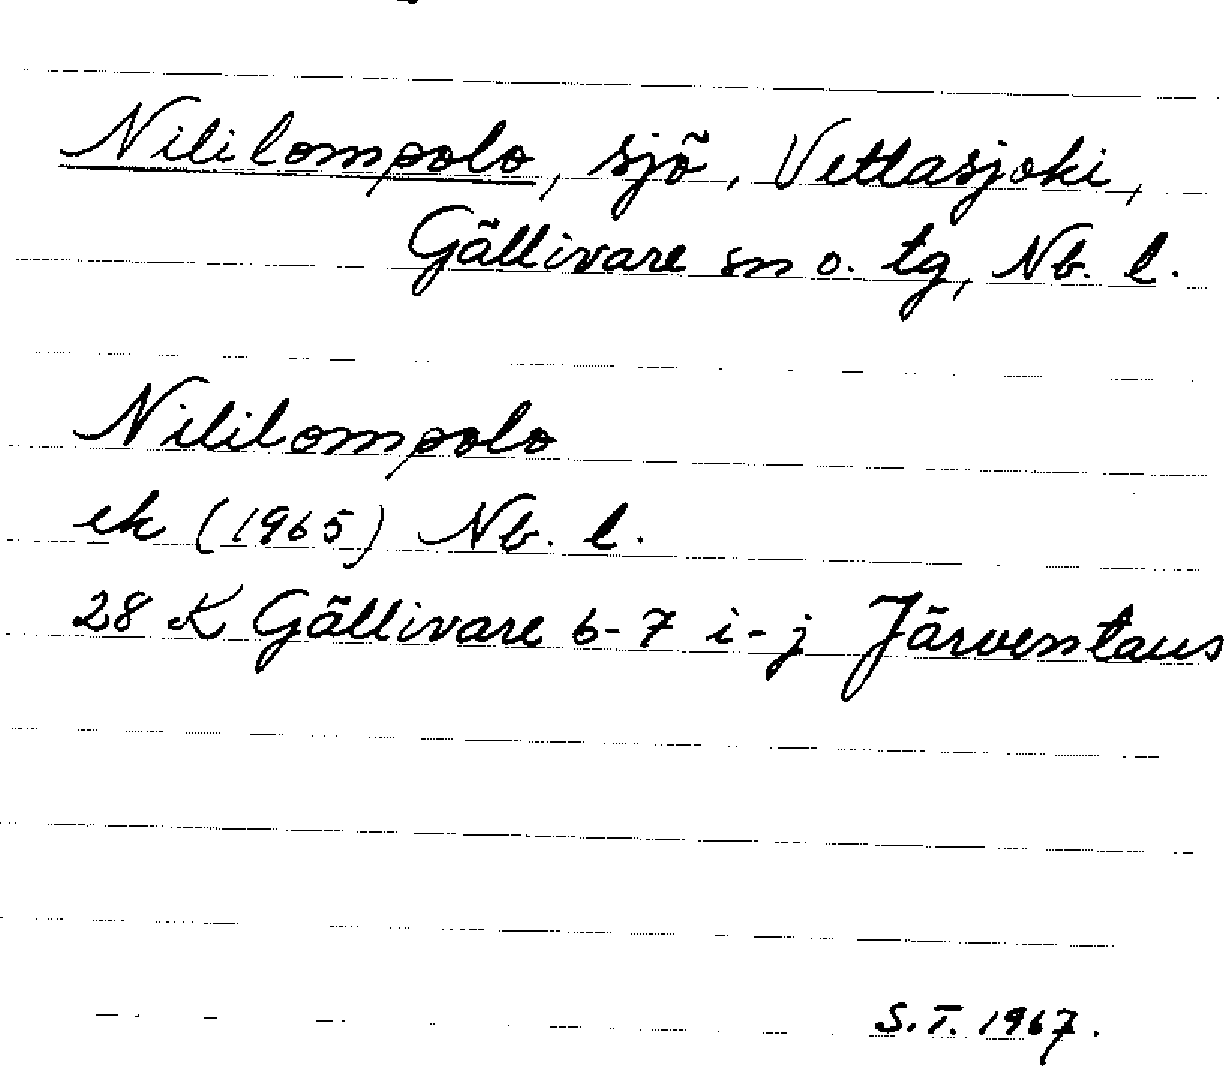 Nililompolo, sjö, Vettasjoki,
Gällivare sn o. tg, Nb. l.
Nililompolo
ek (1965) Nb. l.
28 K Gällivare 6-7 i-j Järventaus
S.T. 1967.